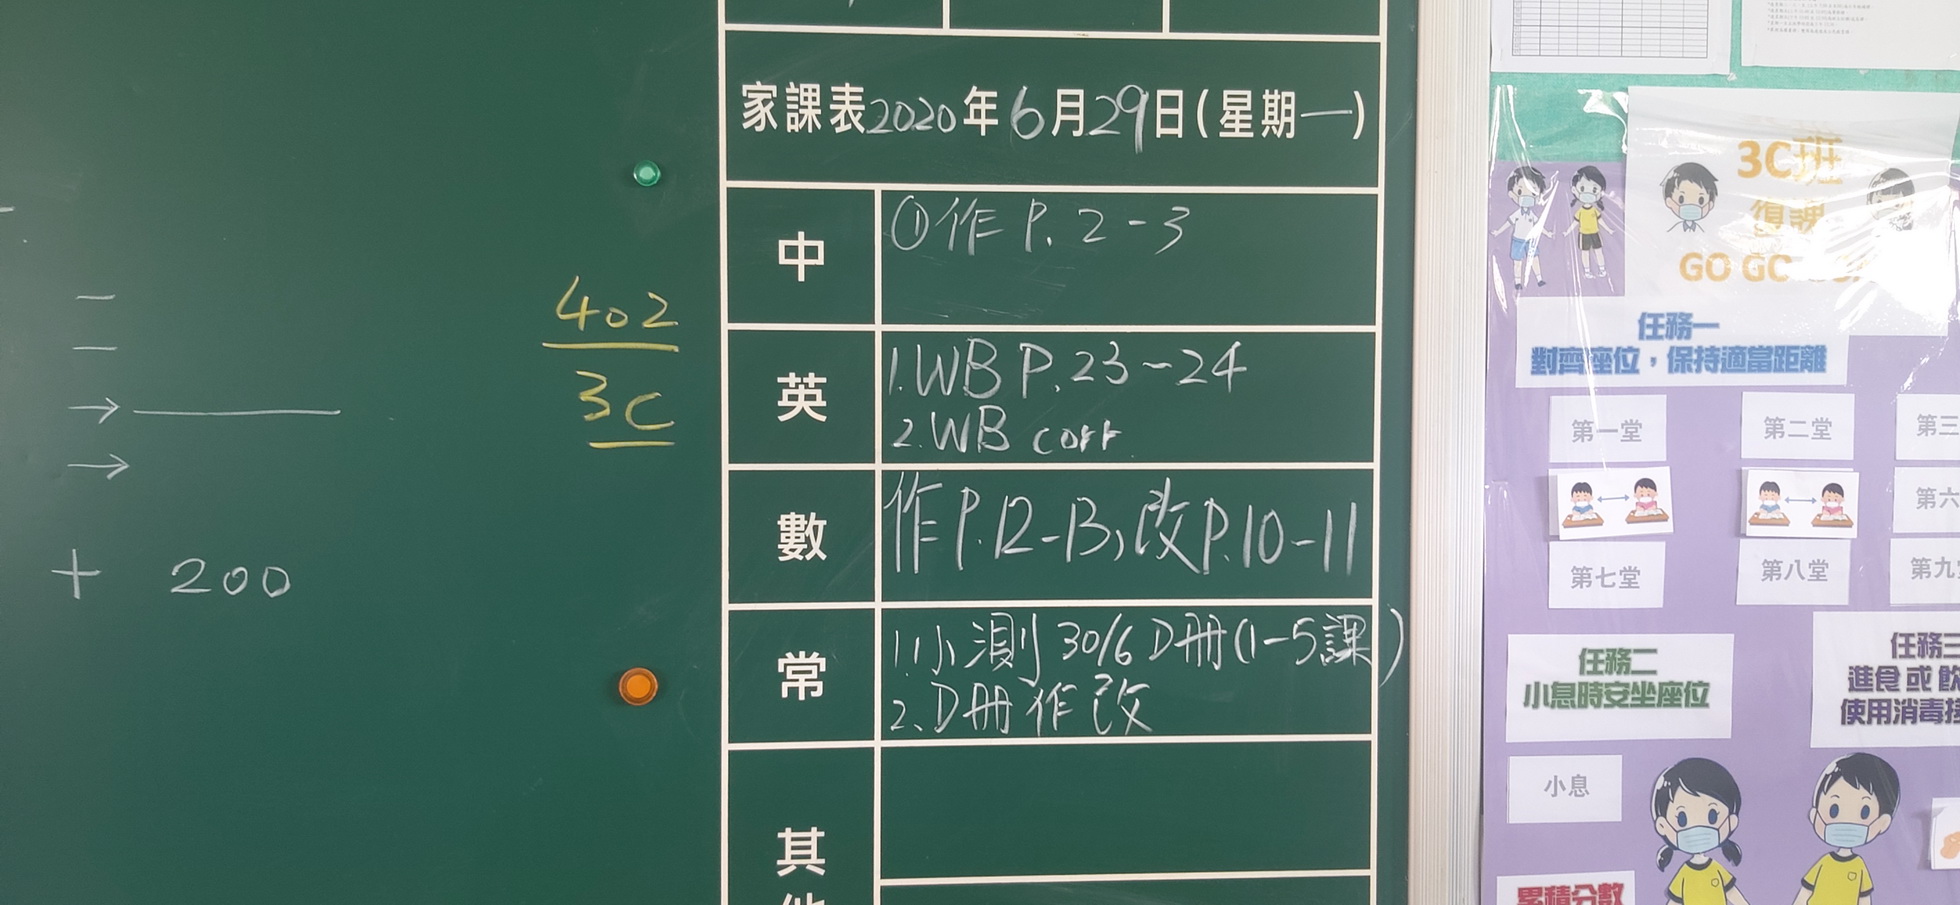 家課表2020年6月29日(星期一)
中
①作 P. 2-3
英
1. WB P. 23-24
2. WB corr
數
作P.12-13,改P.10-11
常
1. 小測 30/6 D冊(1-5課)
2. D冊作改
其
402
3C
+ 200
3C班
復課
GO
任務一
對齊座位,保持適當距離
第一堂
第二堂
第三
第六
第七堂
第八堂
第九堂
任務二
小息時安坐座位
任務三
進食或飲
使用消毒
小息
累積分數